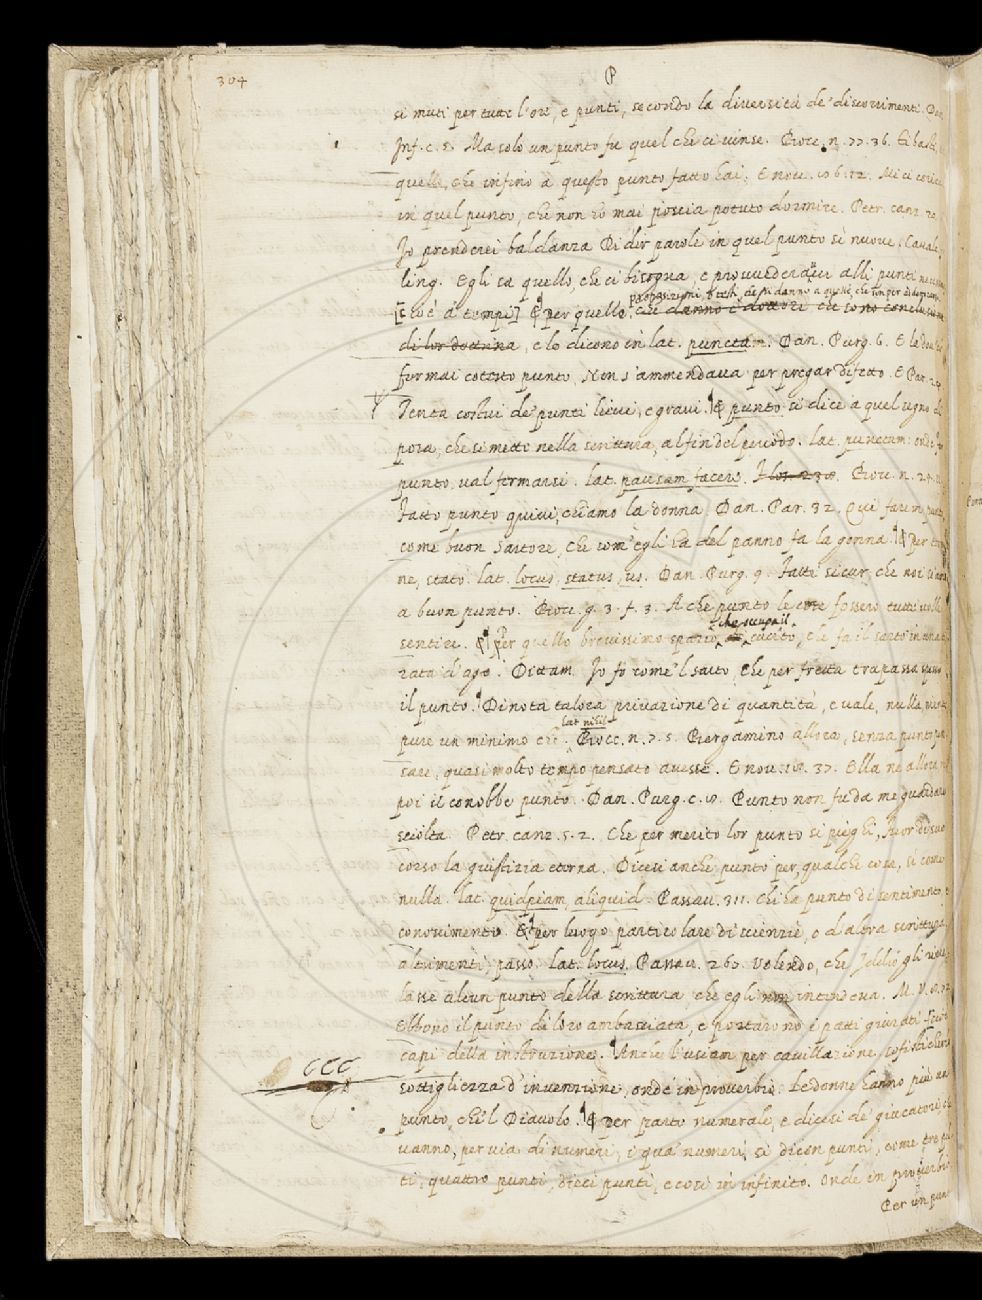 304
P
si muti per tutte l'ore, e punti, secondo la diversità de' discorrimenti.
Inf. c. 5. Ma solo un punto fu quel che ci vinse. Bocc. n. 77. 36. E basti
quello, che infino a questo punto fatto hai. E nov. 106. 12. Mi ci
in quel punto, che non ho mai poscia potuto dormire. Petr. canz. 20.
Io prenderei baldanza Di dir parole in quel punto sì nuove. Caval.
ling. Egli sa quello, che ci bisogna, e provvederacci alli punti
proposizioni, o testi, che si danno a quelli, che son per
[cioè a tempi] E per quello, che danno i dottori che sono conclusione
di lor dottrina, e lo dicono in lat. puncta. Dan. Purg. 6. E là dov'io
fermai cotesto punto, Non s'ammendava per pregar difetto. E Par. 24.
Tenta costui de' punti lievi, e gravi. E punto si dice a quel segno di
posa, che si mette nella scrittura, al fin del periodo. lat. punctum: onde far
punto, val fermarsi. lat. pausam facere. Flos. 238. Bocc. n. 24.
Fatto punto quivi, chiamò la donna. Dan. Par. 32. Qui farem punto
come buon Sartore, Che com' egli ha del panno fa la gonna. E per
ne, stato. lat. locus, status, us. Dan. Purg. 9. Fatti sicur, che noi siamo
a buon punto. Bocc. g. 3. f. 3. A che punto le cose fossero tutti volle
che occupa il
sentire. E per quello brevissimo spazio, cucito, che fa il sarto in una
rata d'ago. Dittam. Io fo come 'l sarto, che per fretta trapassa spesso
il punto. Dinota talora privazione di quantità, e vale, nulla,
lat. nihil
pure un minimo che. Bocc. n. 7. 5. Bergamino allora, senza punto pensare,
sare, quasi molto tempo pensato avesse. E nov. 18. 37. Ella nè allora, nè
poi il conobbe punto. Dan. Purg. c. 8. Punto non fu da me guardare
sciolta. Petr. canz. 5. 2. Che per merito lor punto si pieghi, Fuor di suo
corso la giustizia eterna. Dicesi anche punto per qualche cosa, sì come
nulla. lat. quidpiam, aliquid. Passav. 311. Chi ha punto di sentimento, e
conoscimento. E per luogo particolare di scienzie, o d'altra scrittura,
altrimenti, passo. lat. locus. Passav. 260. Volendo, che Iddio gli
lasse alcun punto della scrittura che egli non intendeva. M. V. 8. 72
Ebbono il punto di loro ambasciata, e portarono i patti giurati
capi della instruzione. Anche l'usiam per cavillazione, sofisticheria
sottigliezza d'invenzione, onde in proverbio. Le donne hanno più un
punto, che 'l Diavolo. E per parto numerale, e dicesi de' giucatori
vanno, per via di numeri, i qua' numeri, si dicon punti, come tre
ti, quattro punti, dieci punti, e così in infinito. Onde in proverbio.
Per un punto